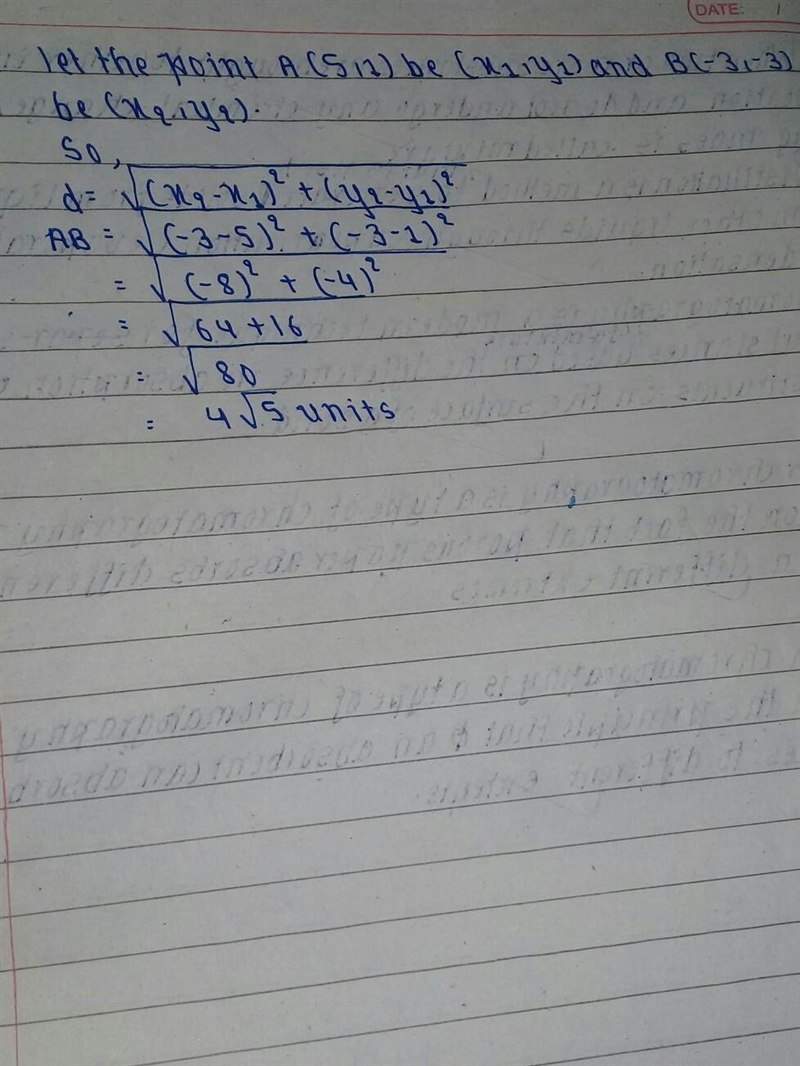 DATE: /
let the point A(5,1) be (x₁,y₁) and B(-3,-3)
be (x₂,y₂).
So,
d = √(x₂-x₁)² + (y₂-y₁)²
AB = √(-3-5)² + (-3-1)²
= √(-8)² + (-4)²
= √64+16
= √80
= 4√5 units